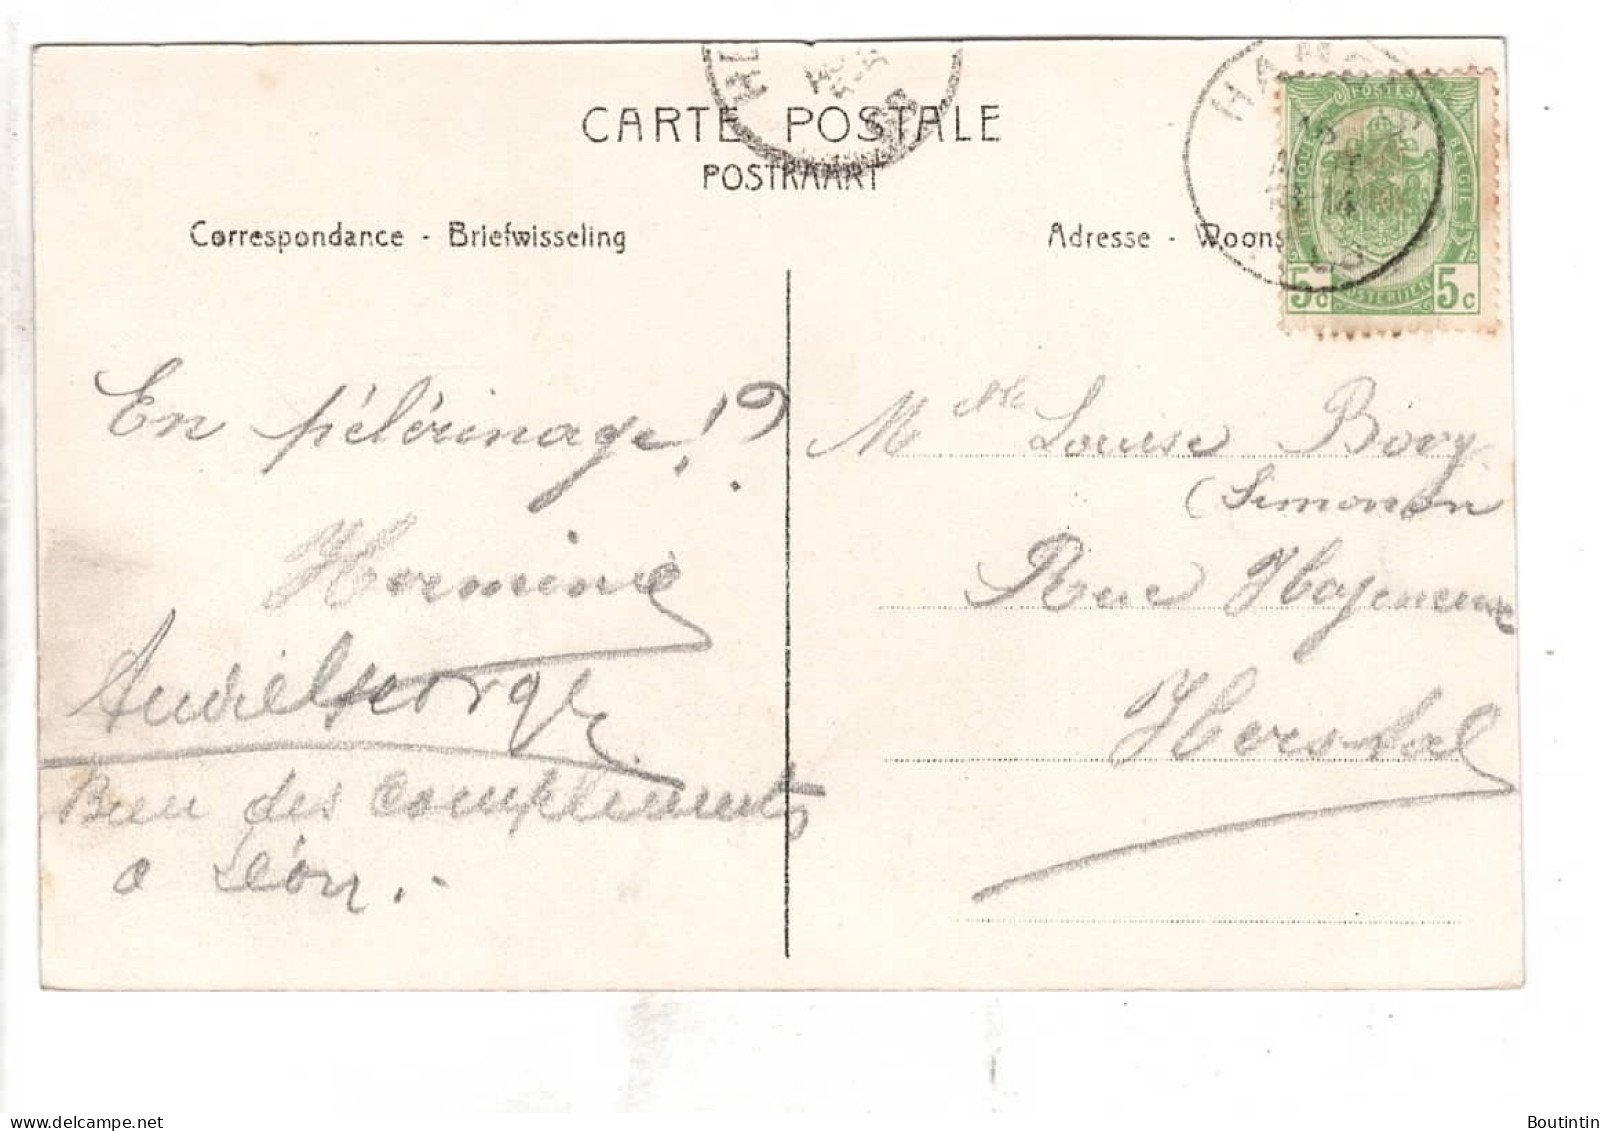 CARTE POSTALE
POSTKAART
Correspondance - Briefwisseling
Adresse - Woons
POSTES
BELGIQUE BELGIE
POSTERIJEN
5c 5c
En pélérinage!?
Hermine
George
Bien des compliments
a Léon.
Mlle Louise Bovy
(Simonon
Rue Hayeneux
Herstal
delcampe.net
Boutintin